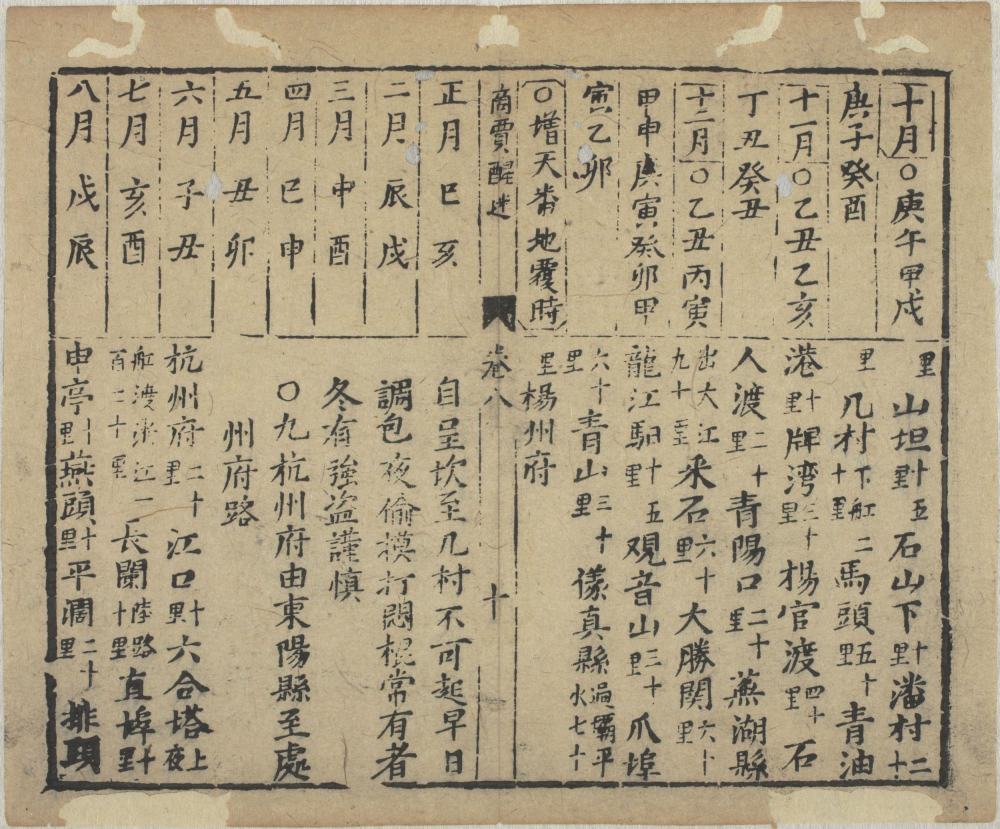 十月○庚午甲戌
庚子癸酉
十一月○乙丑乙亥
丁丑癸丑
十二月○乙丑丙寅
甲申庚寅癸卯甲
寅乙卯
○增天番地覆時
里山坦十五里石山下十里潘村二十
里几村下舡二十里馬頭五十里青油
港十里牌湾三十里楊官渡四十里石
人渡二十里青陽口二十里蕪湖縣
出大江九十里采石六十里大勝関六十里
龍江馹十五里观音山三十里爪埠
六十里青山三十里儀真縣過壩平水七十
里楊州府
商賈醒迷 卷八 十
正月巳亥
二月辰戌
三月申酉
四月巳申
五月丑卯
六月子丑
七月亥酉
八月戌辰
自呈坎至几村不可起早日
調包夜偷摸打悶棍常有者
冬有強盗謹慎
○九杭州府由東陽縣至處
州府路
杭州府二十里江口十里六合塔上夜
舡渡浙江一百二十里長闌陸路十里直埠十里
申亭十里燕頭十里平濶二十里排頭